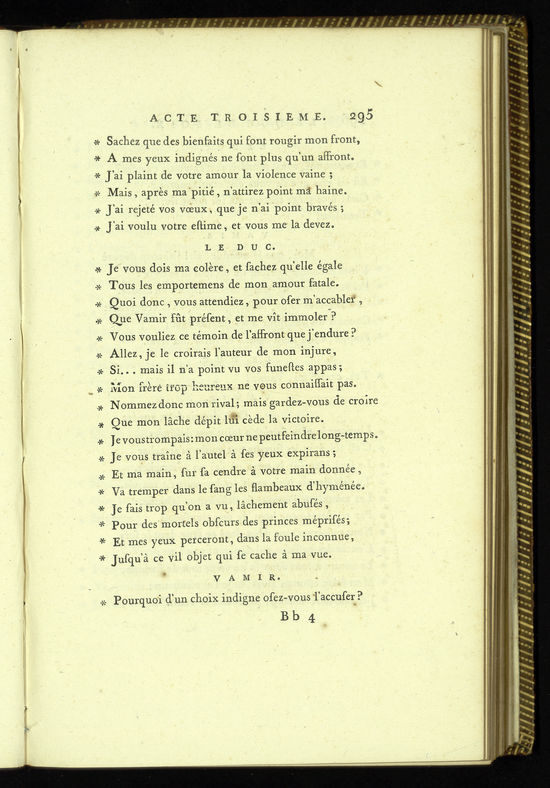 ACTE TROISIEME. 295
* Sachez que des bienfaits qui font rougir mon front,
* A mes yeux indignés ne ſont plus qu'un affront.
* J'ai plaint de votre amour la violence vaine ;
* Mais, après ma pitié, n'attirez point ma haine.
* J'ai rejeté vos vœux, que je n'ai point bravés ;
* J'ai voulu votre eſtime, et vous me la devez.
LE DUC.
* Je vous dois ma colère, et ſachez qu'elle égale
* Tous les emportemens de mon amour fatale.
* Quoi donc, vous attendiez, pour oſer m'accabler,
* Que Vamir fût préſent, et me vît immoler ?
* Vous vouliez ce témoin de l'affront que j'endure ?
* Allez, je le croirais l'auteur de mon injure,
* Si... mais il n'a point vu vos funeſtes appas ;
* Mon frère trop heureux ne vous connaiſſait pas.
* Nommez donc mon rival ; mais gardez-vous de croire
* Que mon lâche dépit lui cède la victoire.
* Je vous trompais : mon cœur ne peut feindre long-temps.
* Je vous traîne à l'autel à ſes yeux expirans ;
* Et ma main, ſur ſa cendre à votre main donnée,
* Va tremper dans le ſang les flambeaux d'hyménée.
* Je ſais trop qu'on a vu, lâchement abuſés,
* Pour des mortels obſcurs des princes mépriſés ;
* Et mes yeux perceront, dans la foule inconnue,
* Juſqu'à ce vil objet qui ſe cache à ma vue.
VAMIR.
* Pourquoi d'un choix indigne oſez-vous l'accuſer ?
Bb 4